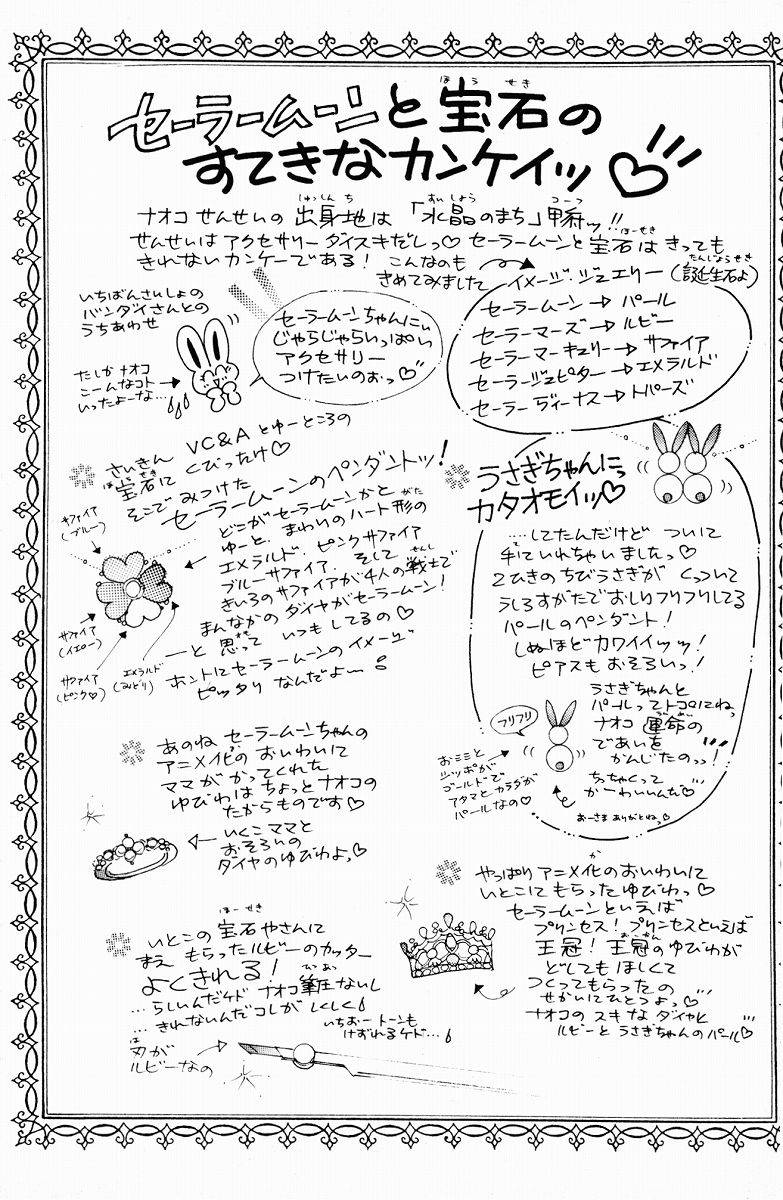 セーラームーンと宝石の
すてきなカンケイッ♡
ナオコせんせいの出身地は「水晶のまち」甲府ッ!!
せんせいはアクセサリーダイスキだしっ♡セーラームーンと宝石はきっても
きれないカンケーである!こんなのも
きめてみました
イメージ・ジュエリー(誕生石よ)
セーラームーン→パール
セーラーマーズ→ルビー
セーラーマーキュリー→サファイア
セーラージュピター→エメラルド
セーラーヴィーナス→トパーズ
いちばんさいしょの
バンダイさんとの
うちあわせ
セーラームーンちゃんにぃ
じゃらじゃらいっぱい
アクセサリー
つけたいのぉっ♡
たしかナオコ
こーんなコト
いったよーな…
さいきん VC&Aとゆーところの
宝石にくびったけ♡
そこでみつけた
セーラームーンのペンダントッ!
どこがセーラームーンかと
ゆーと、まわりのハート形の
エメラルド、ピンクサファイア
ブルーサファイア、そして
きいろのサファイアが4人の戦士で
まんなかのダイヤがセーラームーン!
―と思っていつもしてるの♡
ホントにセーラームーンのイメージ
ピッタリなんだよー
サファイア
(ブルー)
サファイア
(イエロー)
サファイア
(ピンク♡)
エメラルド
(みどり)
うさぎちゃんにっ
カタオモイッ♡
…してたんだけどついに
手にいれちゃいましたっ♡
2ひきのちびうさぎがくっついて
うしろすがたでおしりフリフリしてる
パールのペンダント!
しぬほどカワイイッッ!
ピアスもおそろいっ!
うさぎちゃんと
パールってトコにねっ
ナオコ運命の
であいを
かんじたのっっ!
ちっちゃくって
かーわいいんだ♡
おーさまありがとねっ
フリフリ
おミミと
シッポが
ゴールドで
アタマとカラダが
パールなの♡
あのねセーラームーンちゃんの
アニメ化のおいわいに
ママがかってくれた
ゆびわはちょっとナオコの
たからものです♡
いくこママと
おそろいの
ダイヤのゆびわよっ♡
やっぱりアニメ化のおいわいに
いとこにもらったゆびわっ♡
セーラームーンといえば
プリンセス!プリンセスといえば
王冠!王冠のゆびわが
どしてもほしくて
つくってもらったの
せかいにひとつよっ♡
ナオコのスキなダイヤと
ルビーとうさぎちゃんのパール♡
いとこの宝石やさんに
まえもらったルビーのカッター
よくきれる!
…らしいんだケドナオコ筆圧ないし
…きれないんだコレがしくしく
いちおートーンも
けずれるケド…
刃が
ルビーなの